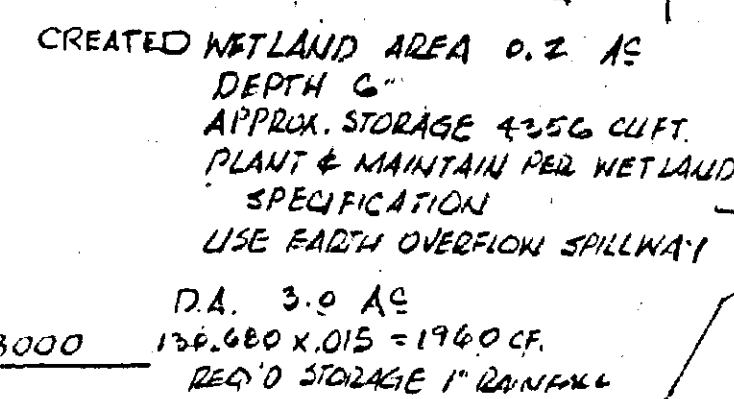 CREATED WETLAND AREA 0.2 AC
DEPTH 6"
APPROX. STORAGE 4356 CU.FT.
PLANT & MAINTAIN PER WETLAND
SPECIFICATION
USE EARTH OVERFLOW SPILLWAY
D.A. 3.0 AC
3000 130,680 X .015 = 1960 CF.
REQ'D STORAGE 1" RAINFALL